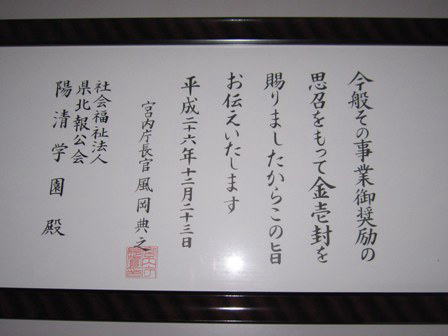 今般その事業御奨励の
思召をもって金壱封を
賜りましたからこの旨
お伝えいたします
平成二十六年十二月二十三日
宮内庁長官 風岡典之
社会福祉法人
県北報公会
陽清学園 殿